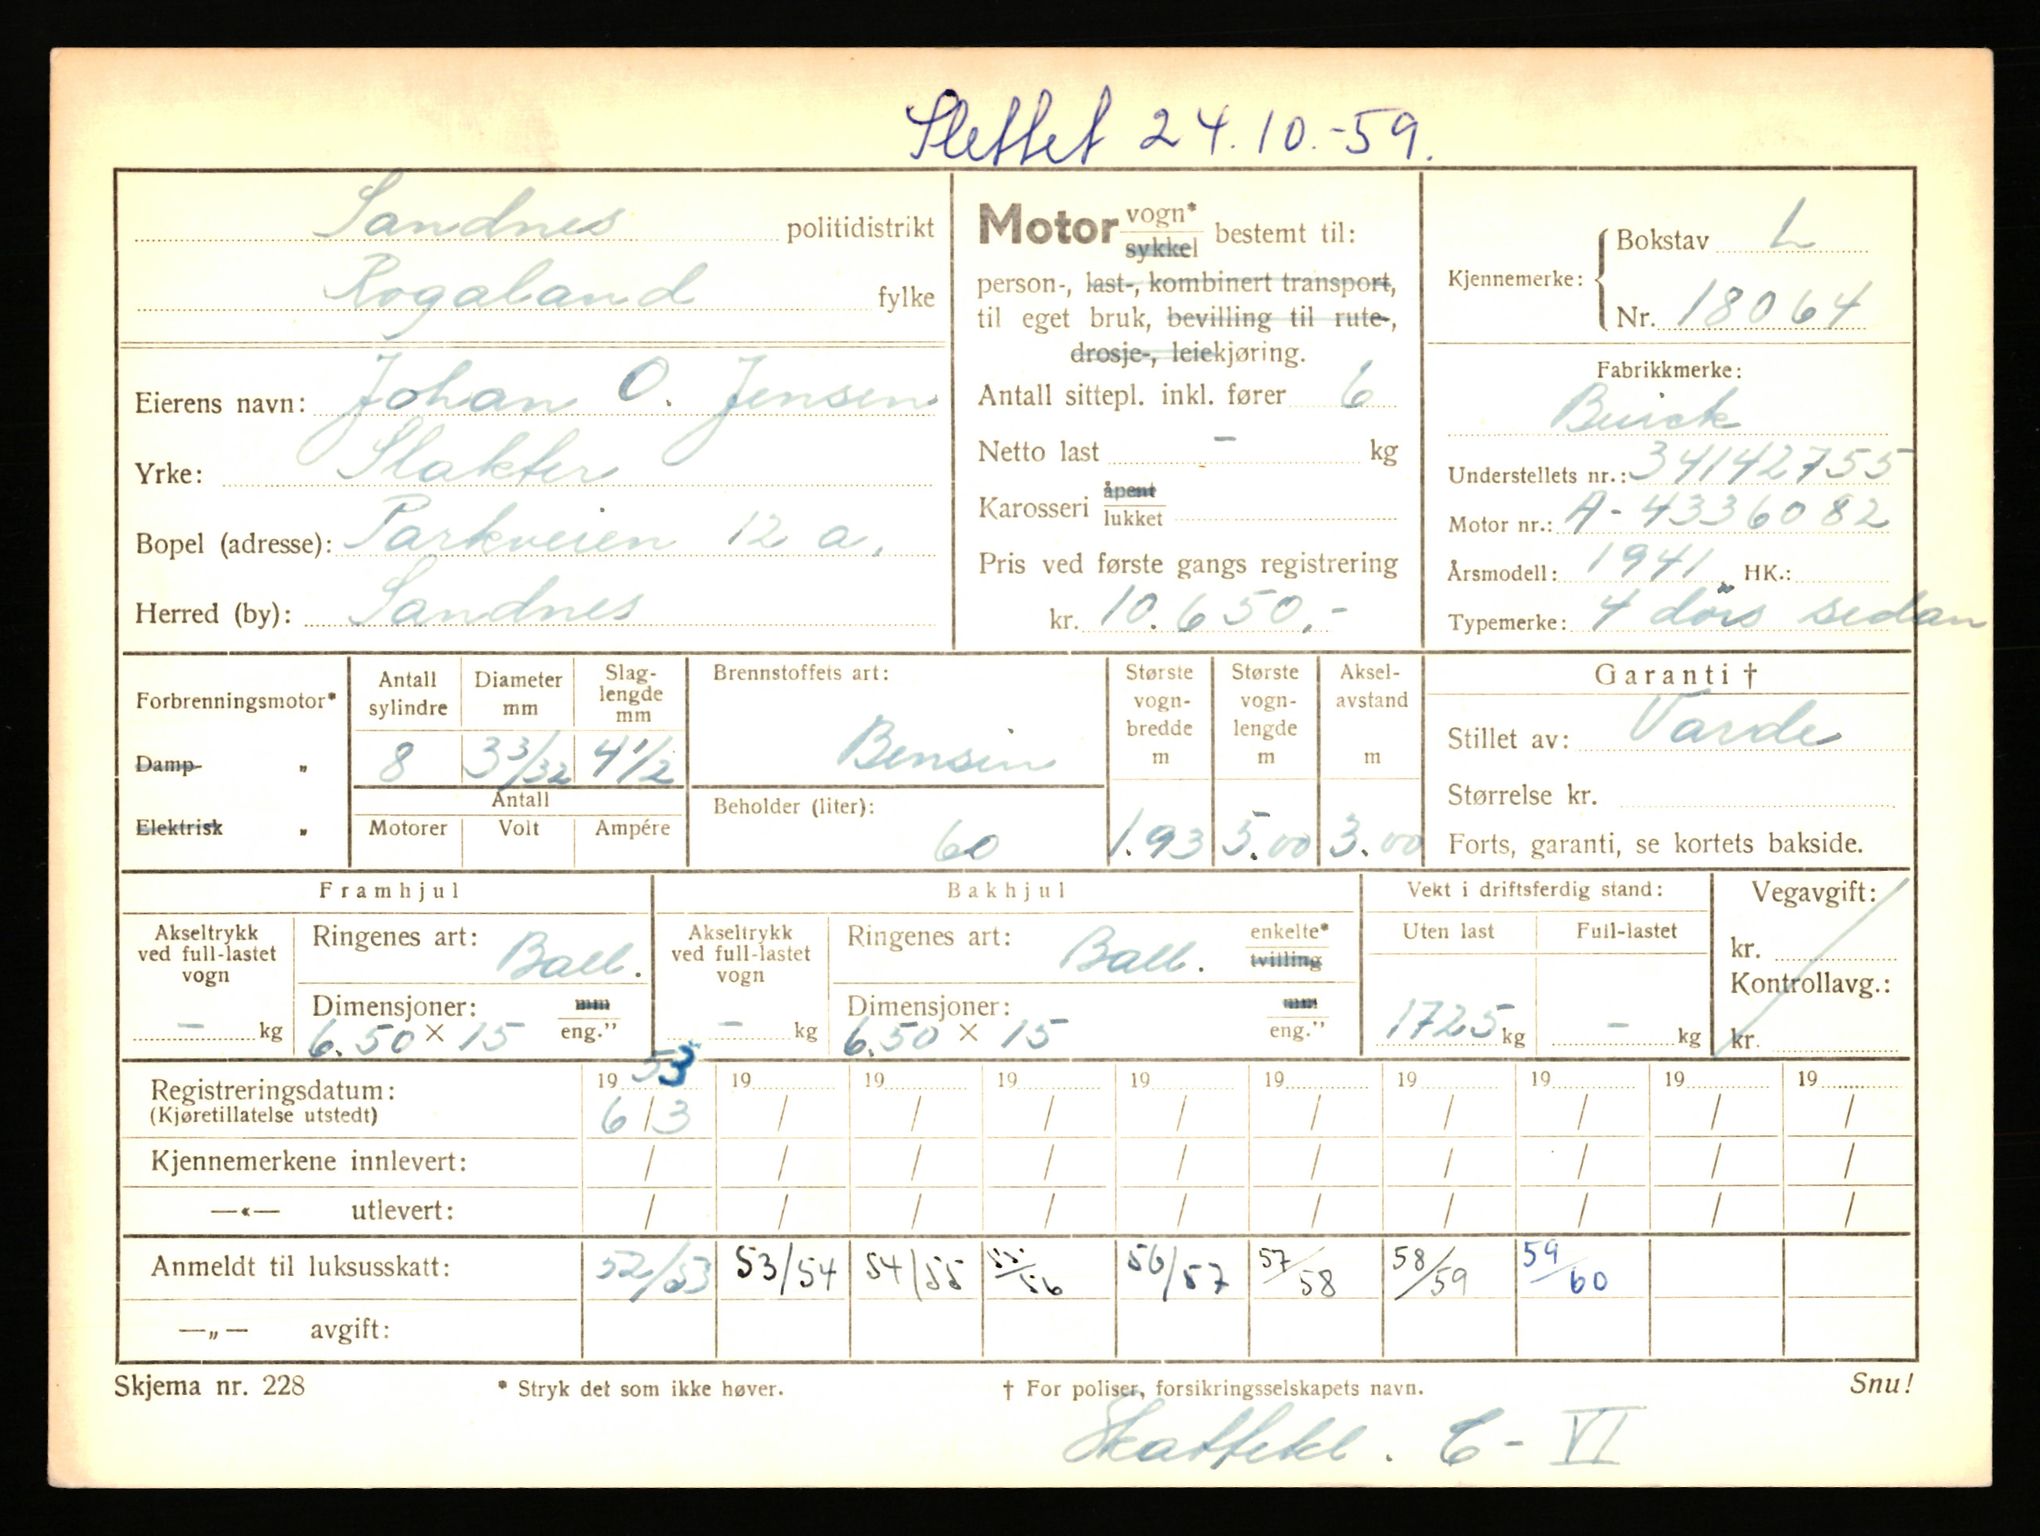 Slettet 24.10.-59.
Sandnes politidistrikt
Rogaland fylke
Eierens navn: Johan O. Jensen
Yrke: Slakter
Bopel (adresse): Parkveien 12 a.
Herred (by): Sandnes
Motor vogn* sykkel bestemt til:
person-, last-, kombinert transport,
til eget bruk, bevilling til rute-,
drosje-, leiekjøring.
Antall sittepl. inkl. fører 6
Netto last - kg
Karosseri åpent lukket
Pris ved første gangs registrering
kr. 10.650,-
Kjennemerke: Bokstav L
Nr. 18064
Fabrikkmerke:
Buick
Understellets nr.: 34142755
Motor nr.: A-4336082
Årsmodell: 1941 HK.:
Typemerke: 4 dörs sedan
Forbrenningsmotor*
Damp- „
Elektrisk „
Antall sylindre 8
Diameter mm 3 3/32
Slag-lengde mm 4 1/2
Antall
Motorer Volt Ampére
Brennstoffets art:
Bensin
Beholder (liter):
60
Største vogn-bredde m 1.93
Største vogn-lengde m 5.00
Aksel-avstand m 3.00
Garanti †
Stillet av: Varde
Størrelse kr.
Forts, garanti, se kortets bakside.
Framhjul
Akseltrykk ved full-lastet vogn
- kg
Ringenes art: Ball.
Dimensjoner: mm eng."
6.50 × 15
Bakhjul
Akseltrykk ved full-lastet vogn
- kg
Ringenes art: Ball. enkelte* tvilling
Dimensjoner: mm eng."
6.50 × 15
Vekt i driftsferdig stand:
Uten last Full-lastet
1725 kg - kg
Vegavgift:
kr.
Kontrollavg.:
kr.
Registreringsdatum: 19 53 19 19 19 19 19 19 19 19 19
(Kjøretillatelse utstedt) 6/3 / / / / / / / / /
Kjennemerkene innlevert: / / / / / / / / / /
—«— utlevert: / / / / / / / / / /
Anmeldt til luksusskatt: 52/53 53/54 54/55 55/56 56/57 57/58 58/59 59/60
—„— avgift:
Skjema nr. 228 * Stryk det som ikke høver. † For poliser, forsikringsselskapets navn. Snu!
Skattekl. C - VI